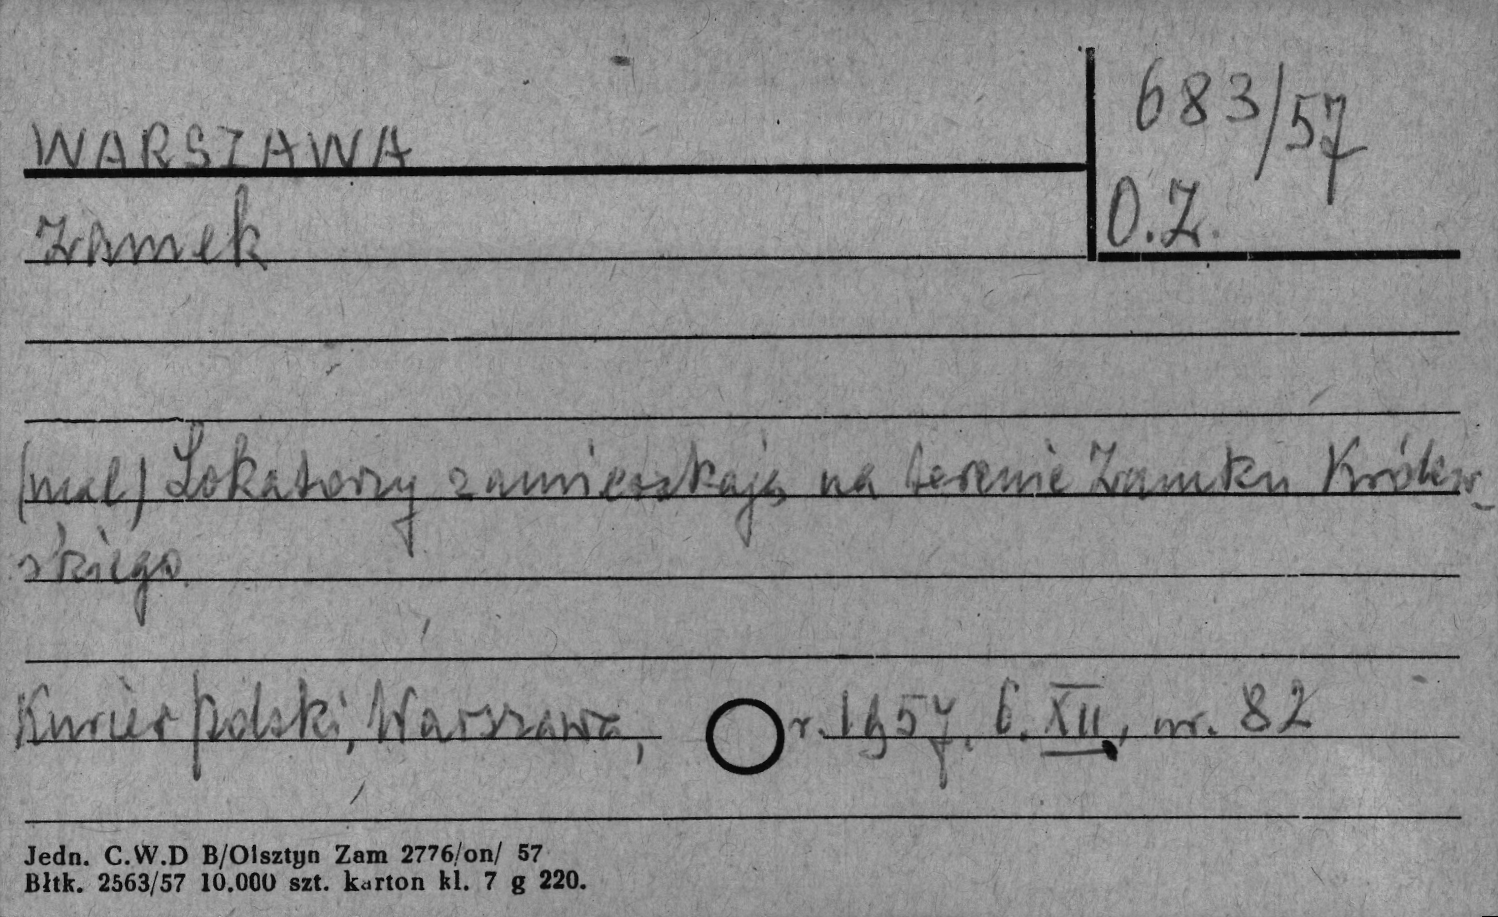 WARSZAWA
683/57
Zamek
O.Z.
(mal) Lokatorzy zamieszkają na terenie Zamku Królew-
skiego.
Kurier polski, Warszawa, r. 1957. 6. XII, nr. 82
Jedn. C.W.D B/Olsztyn Zam 2776/on/ 57
Błtk. 2563/57 10.000 szt. karton kl. 7 g 220.